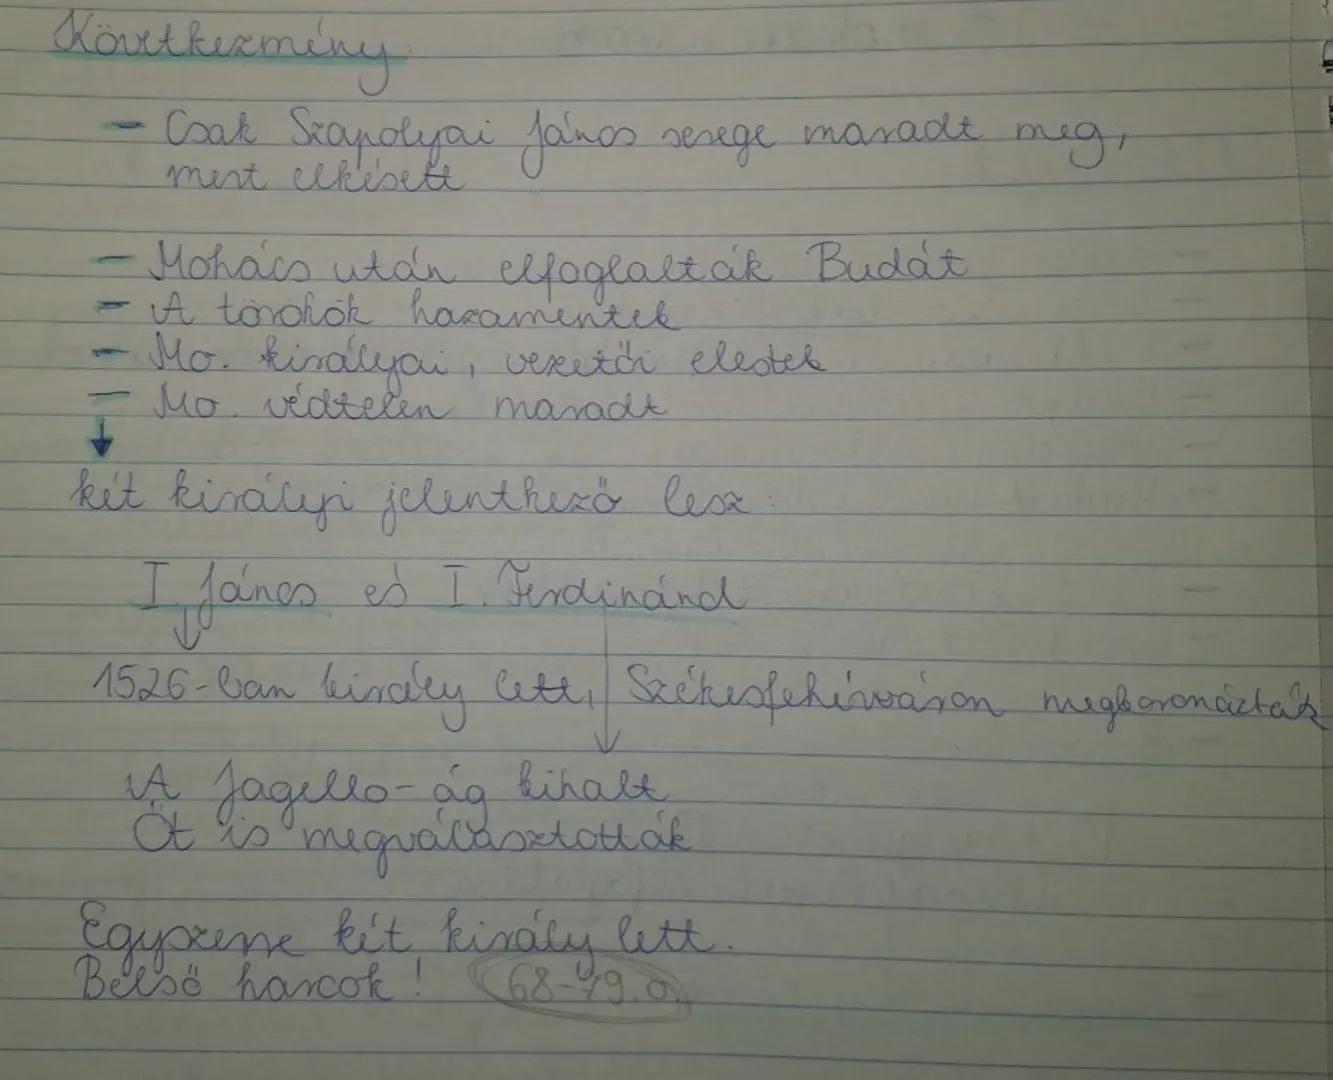 Következmény:
- Csak Szapolyai János serege maradt meg,
mert elkésett
- Mohács után elfoglalták Budát
- A törökök hazamentek
- Mo. királyai, vezetői elestek
- Mo. védtelen maradt
↓
két királyi jelentkező lesz:
I. János és I. Ferdinánd
1526-ban király lett, Székesfehérváron megkoronázták
A Jagello-ág kihalt
Őt is megválasztották
Egyszerre két király lett.
Belső harcok! 68-79.o.